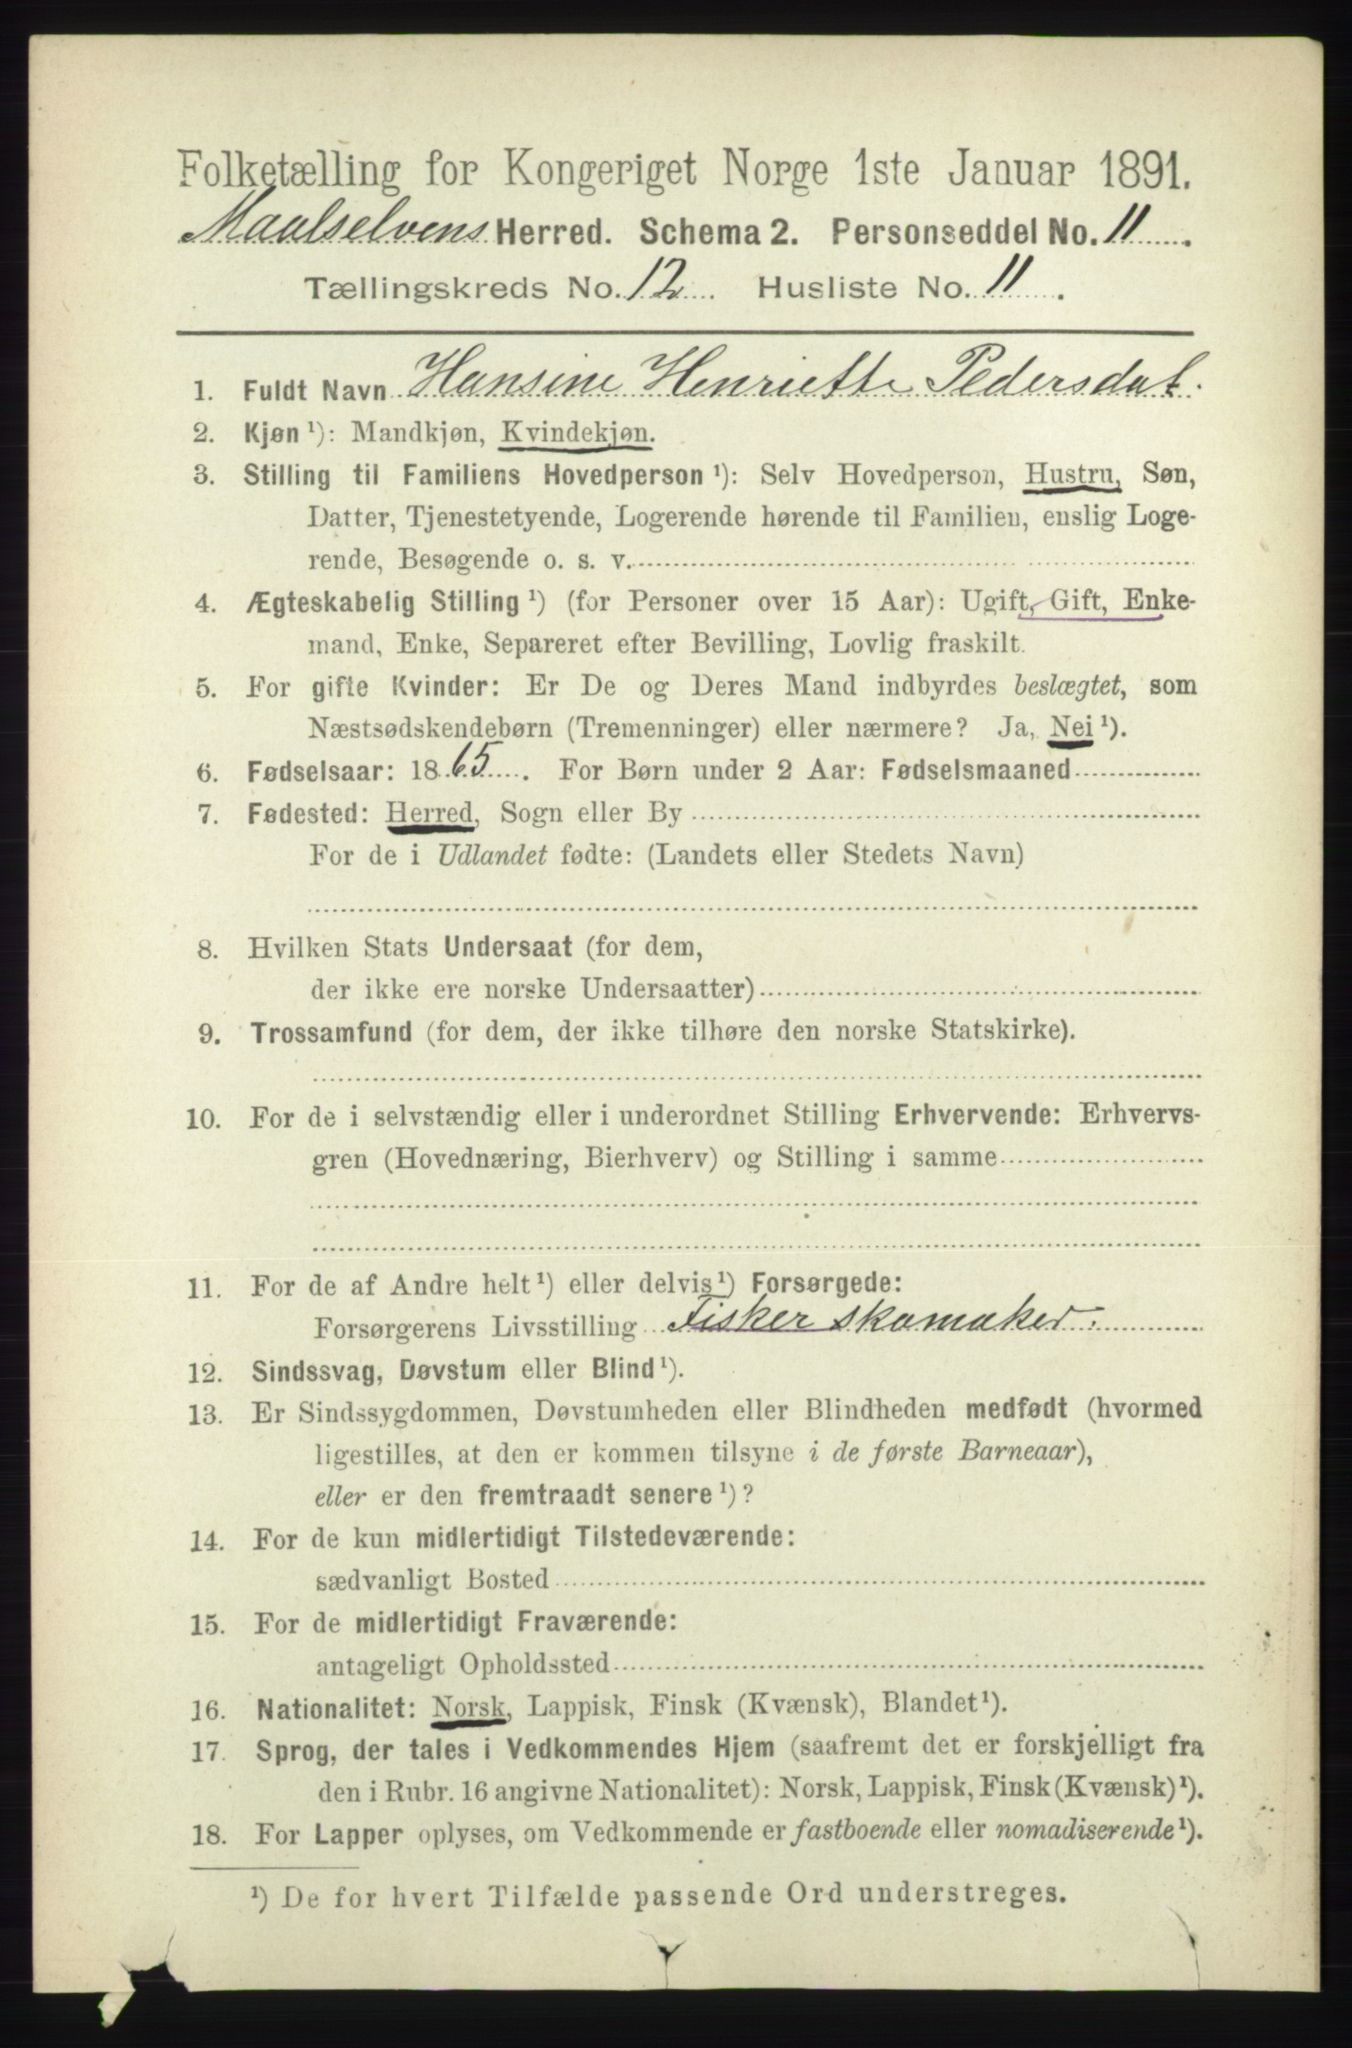 Folketælling for Kongeriget Norge 1ste Januar 1891.
Maalselvens Herred. Schema 2. Personseddel No. 11
Tællingskreds No. 12 Husliste No. 11
1. Fuldt Navn Hansine Henriette Pedersdat.
2. Kjøn ¹): Mandkjøn, Kvindekjøn.
3. Stilling til Familiens Hovedperson ¹): Selv Hovedperson, Hustru, Søn,
Datter, Tjenestetyende, Logerende hørende til Familien, enslig Loge-
rende, Besøgende o. s. v.
4. Ægteskabelig Stilling ¹) (for Personer over 15 Aar): Ugift, Gift, Enke-
mand, Enke, Separeret efter Bevilling, Lovlig fraskilt.
5. For gifte Kvinder: Er De og Deres Mand indbyrdes beslægtet, som
Næstsødskendebørn (Tremenninger) eller nærmere? Ja, Nei ¹).
6. Fødselsaar: 1865. For Børn under 2 Aar: Fødselsmaaned
7. Fødested: Herred, Sogn eller By
For de i Udlandet fødte: (Landets eller Stedets Navn)
8. Hvilken Stats Undersaat (for dem,
der ikke ere norske Undersaatter)
9. Trossamfund (for dem, der ikke tilhøre den norske Statskirke).
10. For de i selvstændig eller i underordnet Stilling Erhvervende: Erhvervs-
gren (Hovednæring, Bierhverv) og Stilling i samme
11. For de af Andre helt ¹) eller delvis ¹) Forsørgede:
Forsørgerens Livsstilling Fisker skomaker.
12. Sindssvag, Døvstum eller Blind ¹).
13. Er Sindssygdommen, Døvstumheden eller Blindheden medfødt (hvormed
ligestilles, at den er kommen tilsyne i de første Barneaar),
eller er den fremtraadt senere ¹)?
14. For de kun midlertidigt Tilstedeværende:
sædvanligt Bosted
15. For de midlertidigt Fraværende:
antageligt Opholdssted
16. Nationalitet: Norsk, Lappisk, Finsk (Kvænsk), Blandet ¹).
17. Sprog, der tales i Vedkommendes Hjem (saafremt det er forskjelligt fra
den i Rubr. 16 angivne Nationalitet): Norsk, Lappisk, Finsk (Kvænsk) ¹).
18. For Lapper oplyses, om Vedkommende er fastboende eller nomadiserende ¹).
¹) De for hvert Tilfælde passende Ord understreges.